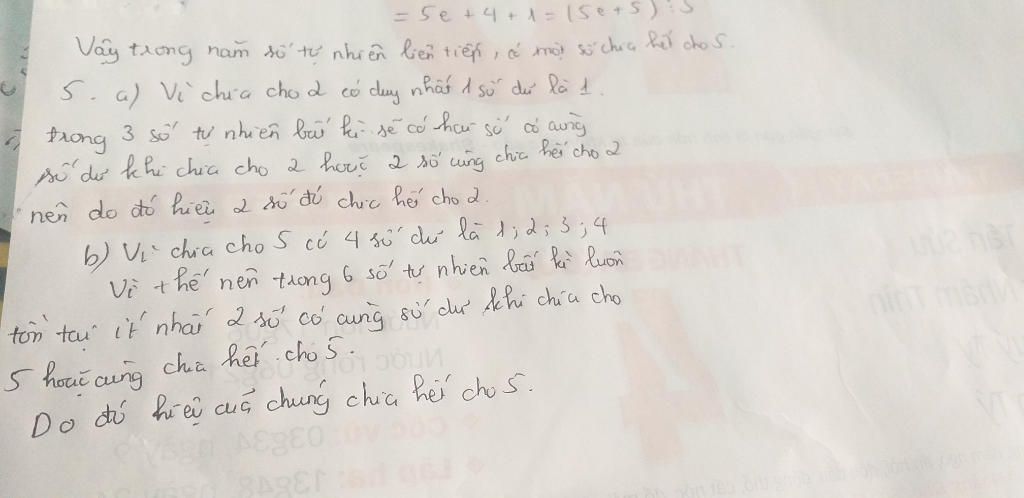 = 5e + 4 + 1 = (5e + 5) ⋮ 5
Vậy trong năm số tự nhiên liên tiếp, có một số chia hết cho 5.
5. a) Vì chia cho 2 có duy nhất 1 số dư là 1.
trong 3 số tự nhiên bất kì sẽ có hai số có cùng
số dư khi chia cho 2 hoặc 2 số cùng chia hết cho 2
nên do đó hiệu 2 số đó chia hết cho 2.
b) Vì chia cho 5 có 4 số dư là 1; 2; 3; 4
Vì thế nên trong 6 số tự nhiên bất kì luôn
tồn tại ít nhất 2 số có cùng số dư khi chia cho
5 hoặc cùng chia hết cho 5.
Do đó hiệu của chúng chia hết cho 5.